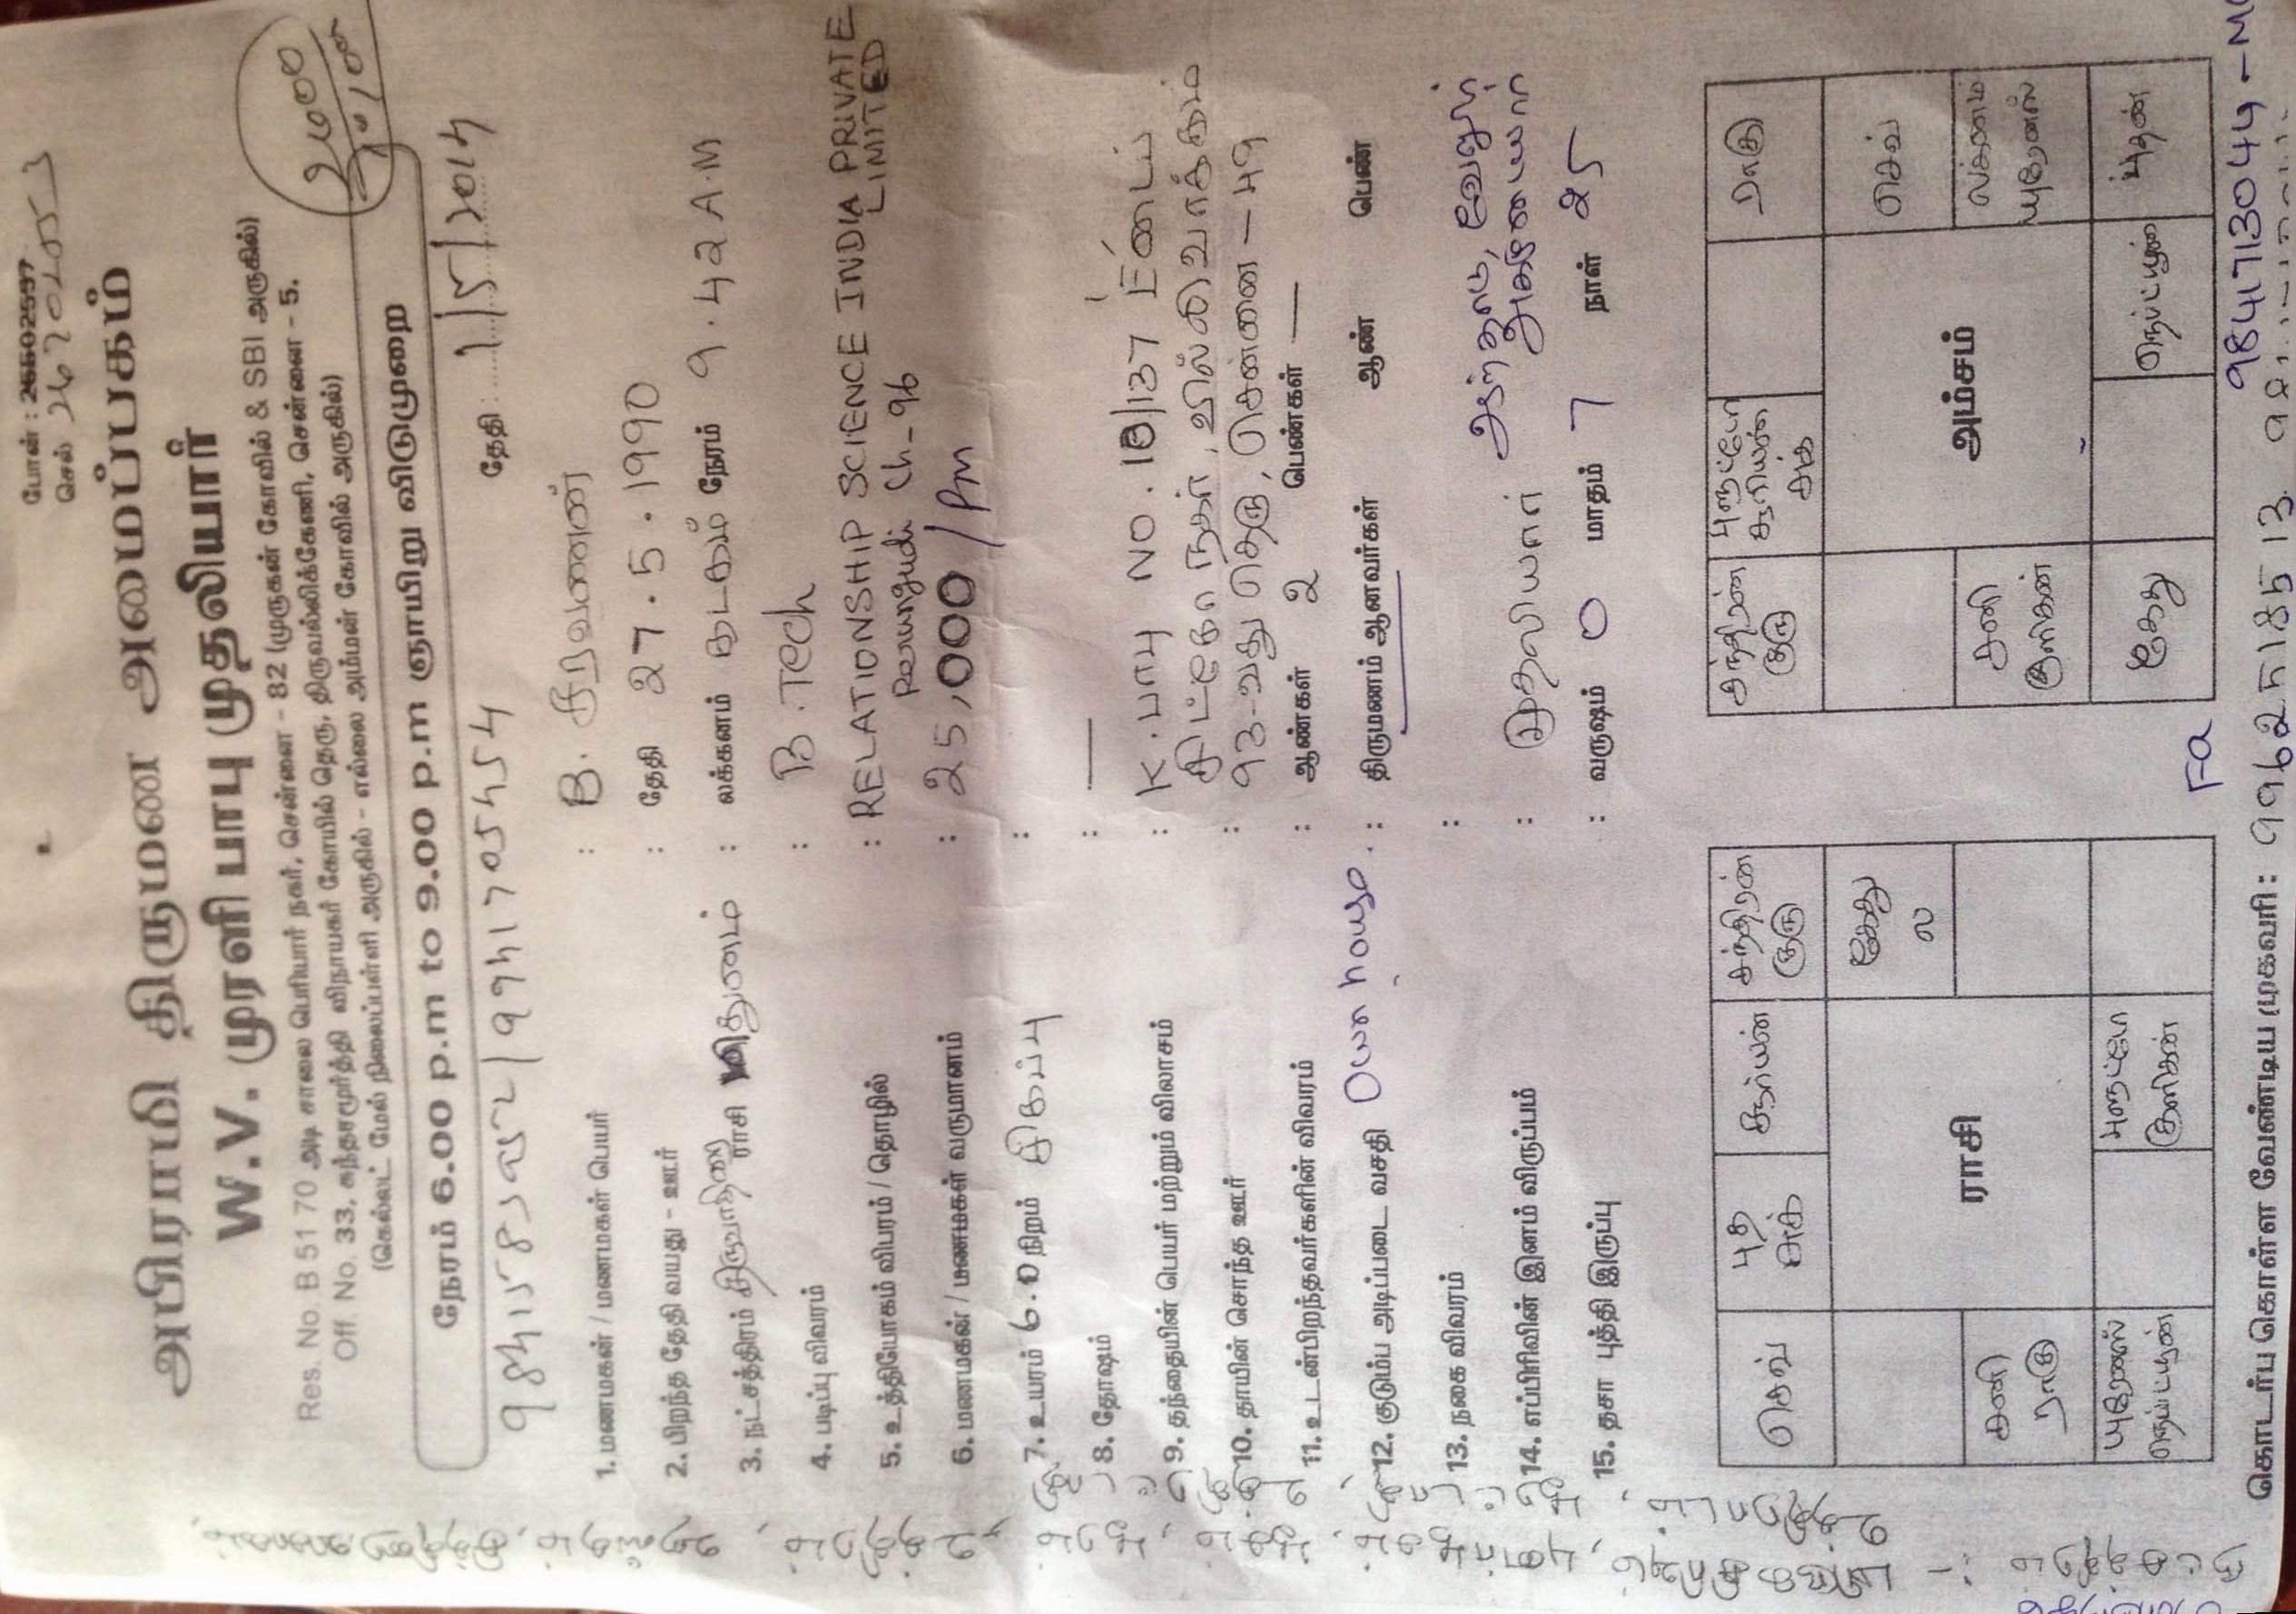 போன் : 26602597
செல் 26720253
அபிராமி திருமண அமைப்பகம்
W.V. முரளி பாபு முதலியார்
2000
Res. No. B 51 70 அடி சாலை பெரியார் நகர், சென்னை - 82 (முருகன் கோவில் & SBI அருகில்)
Off. No. 33, அந்தமூர்த்தி விநாயகர் கோயில் தெரு, திருவல்லிக்கேணி, சென்னை - 5.
(வெல்லட் மேல் நிலைப்பள்ளி அருகில் - எல்லை அம்மன் கோவில் அருகில்)
நேரம் 6.00 p.m to 9.00 p.m ஞாயிறு விடுமுறை
தேதி : 1/5/2014
9841583252 / 9941705454
1. மணமகன் / மணமகள் பெயர் : B. சரவணன்
2. பிறந்த தேதி வயது - ஊர் : தேதி 27.5.1990
3. நட்சத்திரம் திருவாதிரை ராசி மிதுனம் : லக்கனம் கடகம் நேரம் 9.42 A.M
4. படிப்பு விவரம் : B.Tech
5. உத்தியோகம் விபரம் / தொழில் : RELATIONSHIP SCIENCE INDIA PRIVATE LIMITED
Perungudi Ch-96
6. மணமகன் / மணமகள் வருமானம் : 25,000 /Pm
7. உயரம் 6.0 நிறம் சிகப்பு :
8. தோஷம் : —
9. தந்தையின் பெயர் மற்றும் விலாசம் : K. பாபு NO. 10/137 E ண்டப்
சிட்கோ நகர், வில்லிவாக்கம்
10. தாயின் சொந்த ஊர் : 93-வது தெரு, சென்னை - 49
11. உடன்பிறந்தவர்களின் விவரம் : ஆண்கள் 2 பெண்கள் —
12. குடும்ப அடிப்படை வசதி Own house. : திருமணம் ஆனவர்கள் ஆண் பெண்
13. நகை விவரம் :
14. எப்பிரிவின் இனம் விருப்பம் : முதலியார் ஆற்காடு, வேலூர்
15. தசா புத்தி இருப்பு : வருஷம் 0 மாதம் 7 நாள் 25
செவ்
புத
சுக்
சூரியன்
சந்திரன்
குரு
கேது
ல
ராசி
சனி
ராகு
யுரேனஸ்
நெப்டியூன்
புளூட்டோ
குளிகன்
சந்திரன்
குரு
புளூட்டோ
சூரியன்
சுக்
ராகு
செவ்
அம்சம்
சனி
குளிகன்
லக்னம்
யுரேனஸ்
கேது
நெப்ட்யூன்
புதன்
Fa 9841713044 - Mo
தொடர்பு கொள்ள வேண்டிய முகவரி : 9962518513